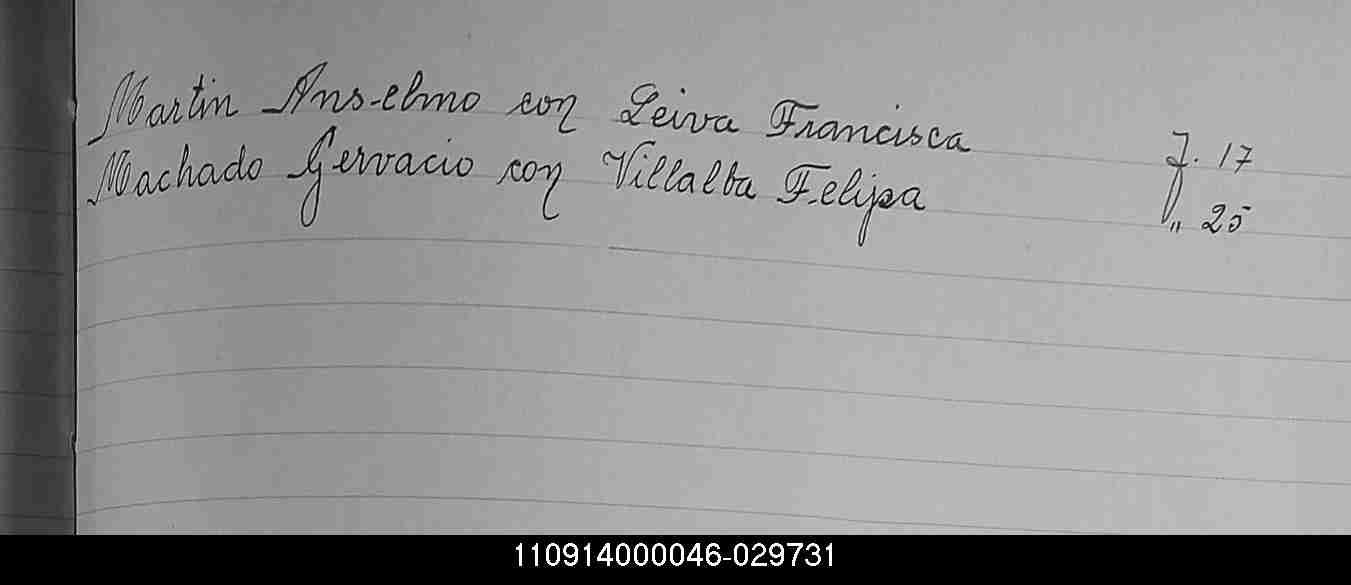 Martin Anselmo con Leiva Francisca f. 17
Machado Gervacio con Villalba Felipa " 25
110914000046-029731